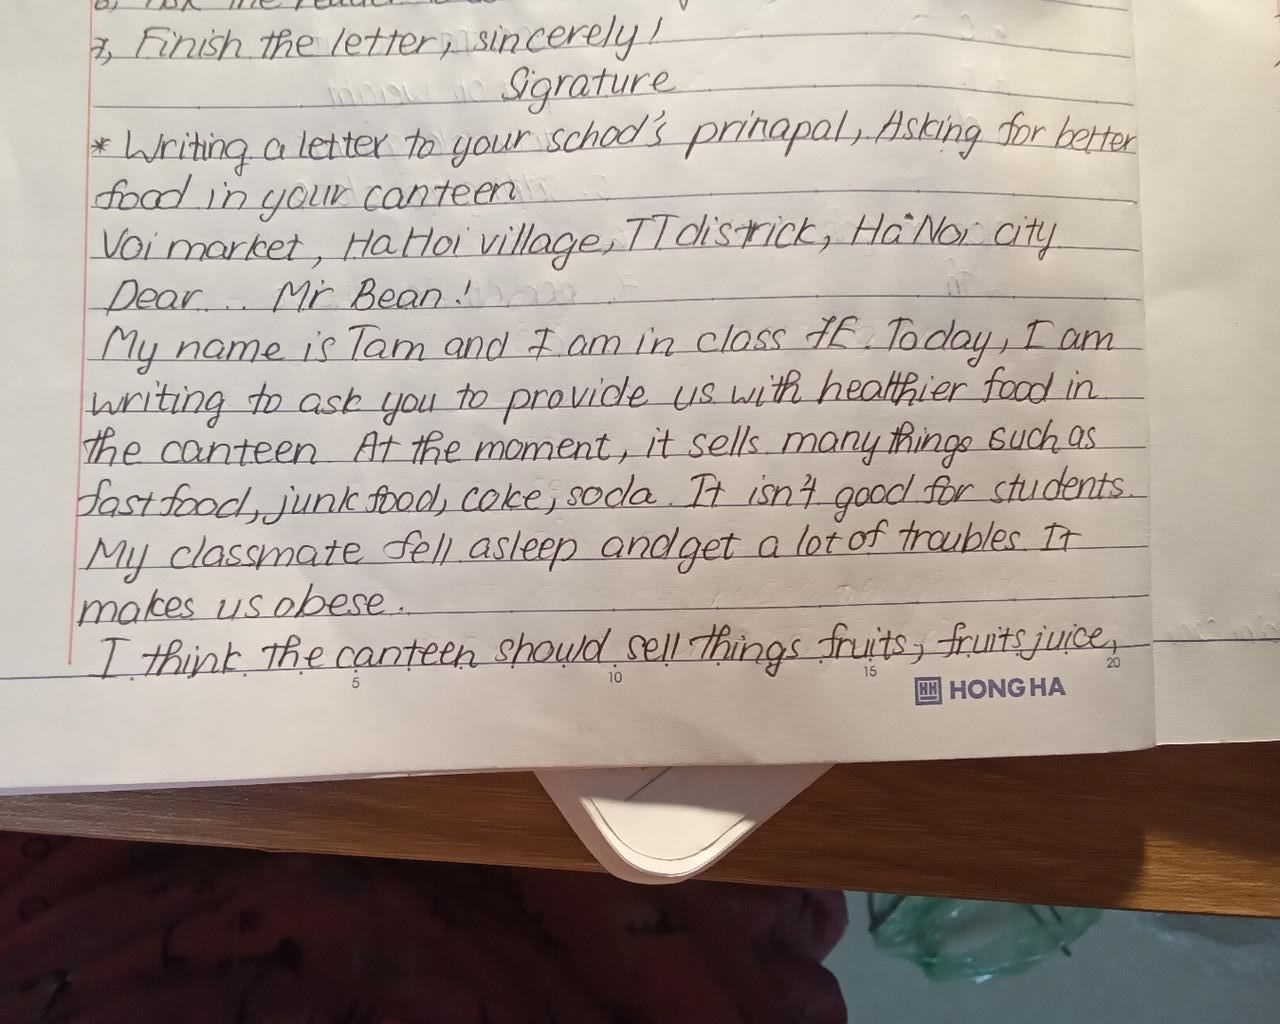 7, Finish the letter, sincerely!
Sigrature
* Writing a letter to your school's prinapal, Asking for better
food in your canteen
Voi market, Ha Hoi village, TT district, Hà Nội city
Dear... Mr Bean!
My name is Tam and I am in class 7E. Today, I am
writing to ask you to provide us with healthier food in
the canteen At the moment, it sells many things such as
fast food, junk food, coke, soda. It isn't good for students.
My classmate fell asleep and get a lot of troubles. It
makes us obese.
I think the canteen should sell things fruits, fruits juice,
5 10 15 20
HH HONG HA